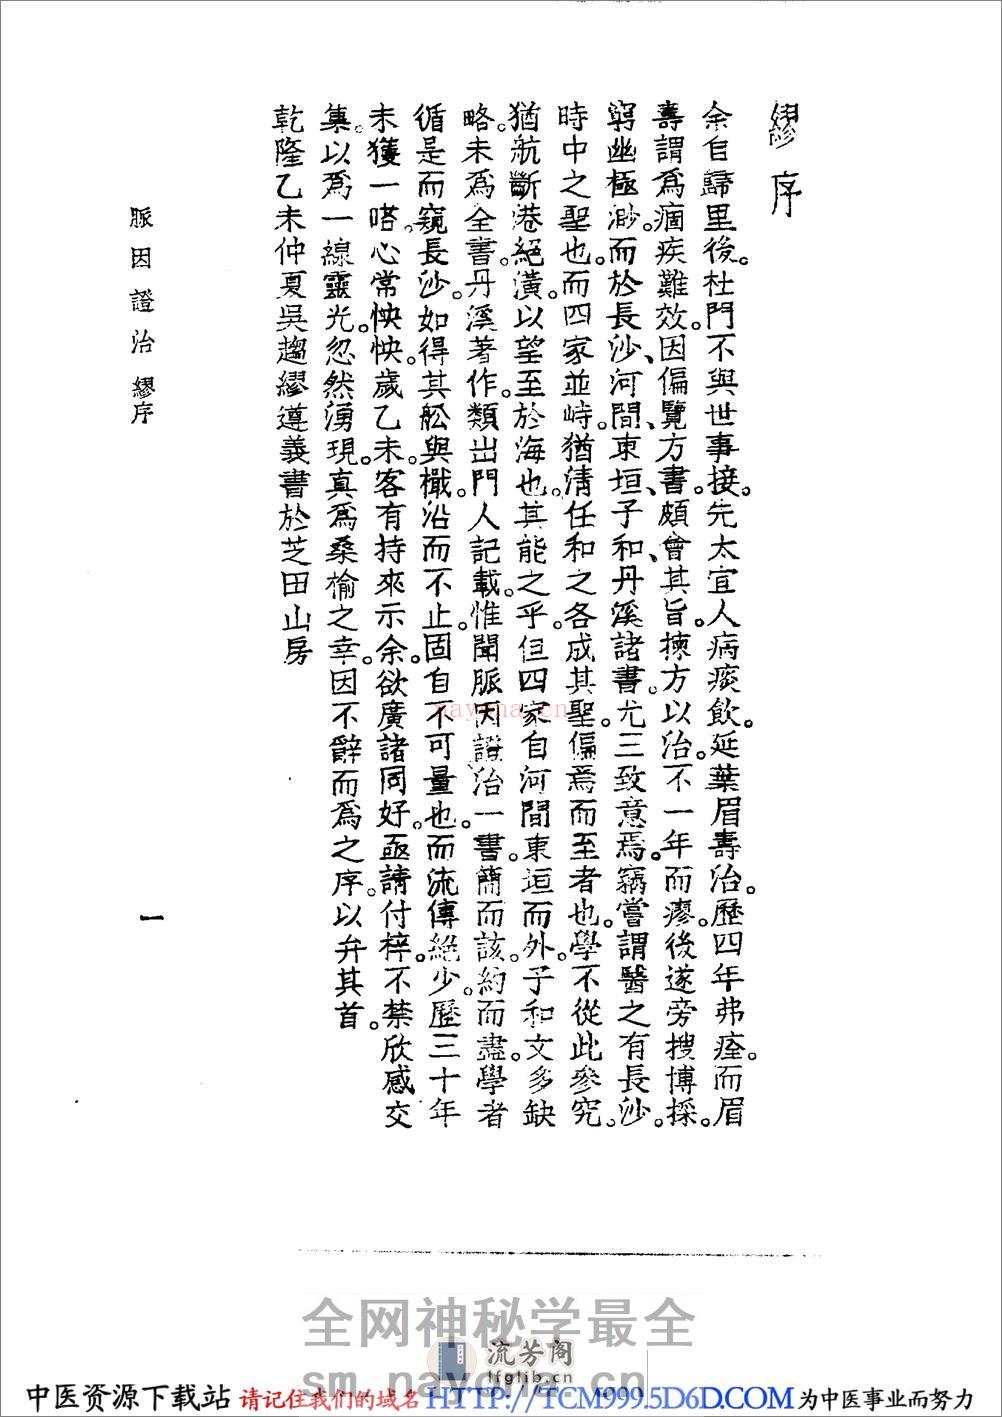 繆序
余自歸里後。杜門不與世事接。先太宜人病痰飲。延葉眉壽治。歷四年弗痊。而眉
壽謂爲痼疾難效。因偏覽方書。頗會其旨。揀方以治。不一年而瘳。後遂旁搜博採。
窮幽極渺。而於長沙、河間、東垣、子和、丹溪諸書。尤三致意焉。竊嘗謂醫之有長沙。
時中之聖也。而四家並峙。猶清任和之各成其聖。偏焉而至者也。學不從此參究。
猶航斷港絕潢。以望至於海也。其能之乎。但四家自河間東垣而外。子和文多缺
略。未爲全書。丹溪著作。類出門人記載。惟聞脈因證治一書。簡而該。約而盡。學者
循是而窺長沙。如得其舩與檝。沿而不止。固自不可量也。而流傳絕少。歷三十年
未獲一嗒。心常怏怏。歲乙未。客有持來示余。欲廣諸同好。亟請付梓。不禁欣感交
集。以爲一線靈光。忽然湧現。真爲桑榆之幸。因不辭而爲之序。以弁其首。
乾隆乙未仲夏吳趨繆遵義書於芝田山房
脈因證治 繆序
一
nayona.cn
全网神秘学最全
流芳阁
lfglib.cn
sm.nayona.cn
中医资源下载站 请记住我们的域名 HTTP://TCM999.5D6D.COM 为中医事业而努力